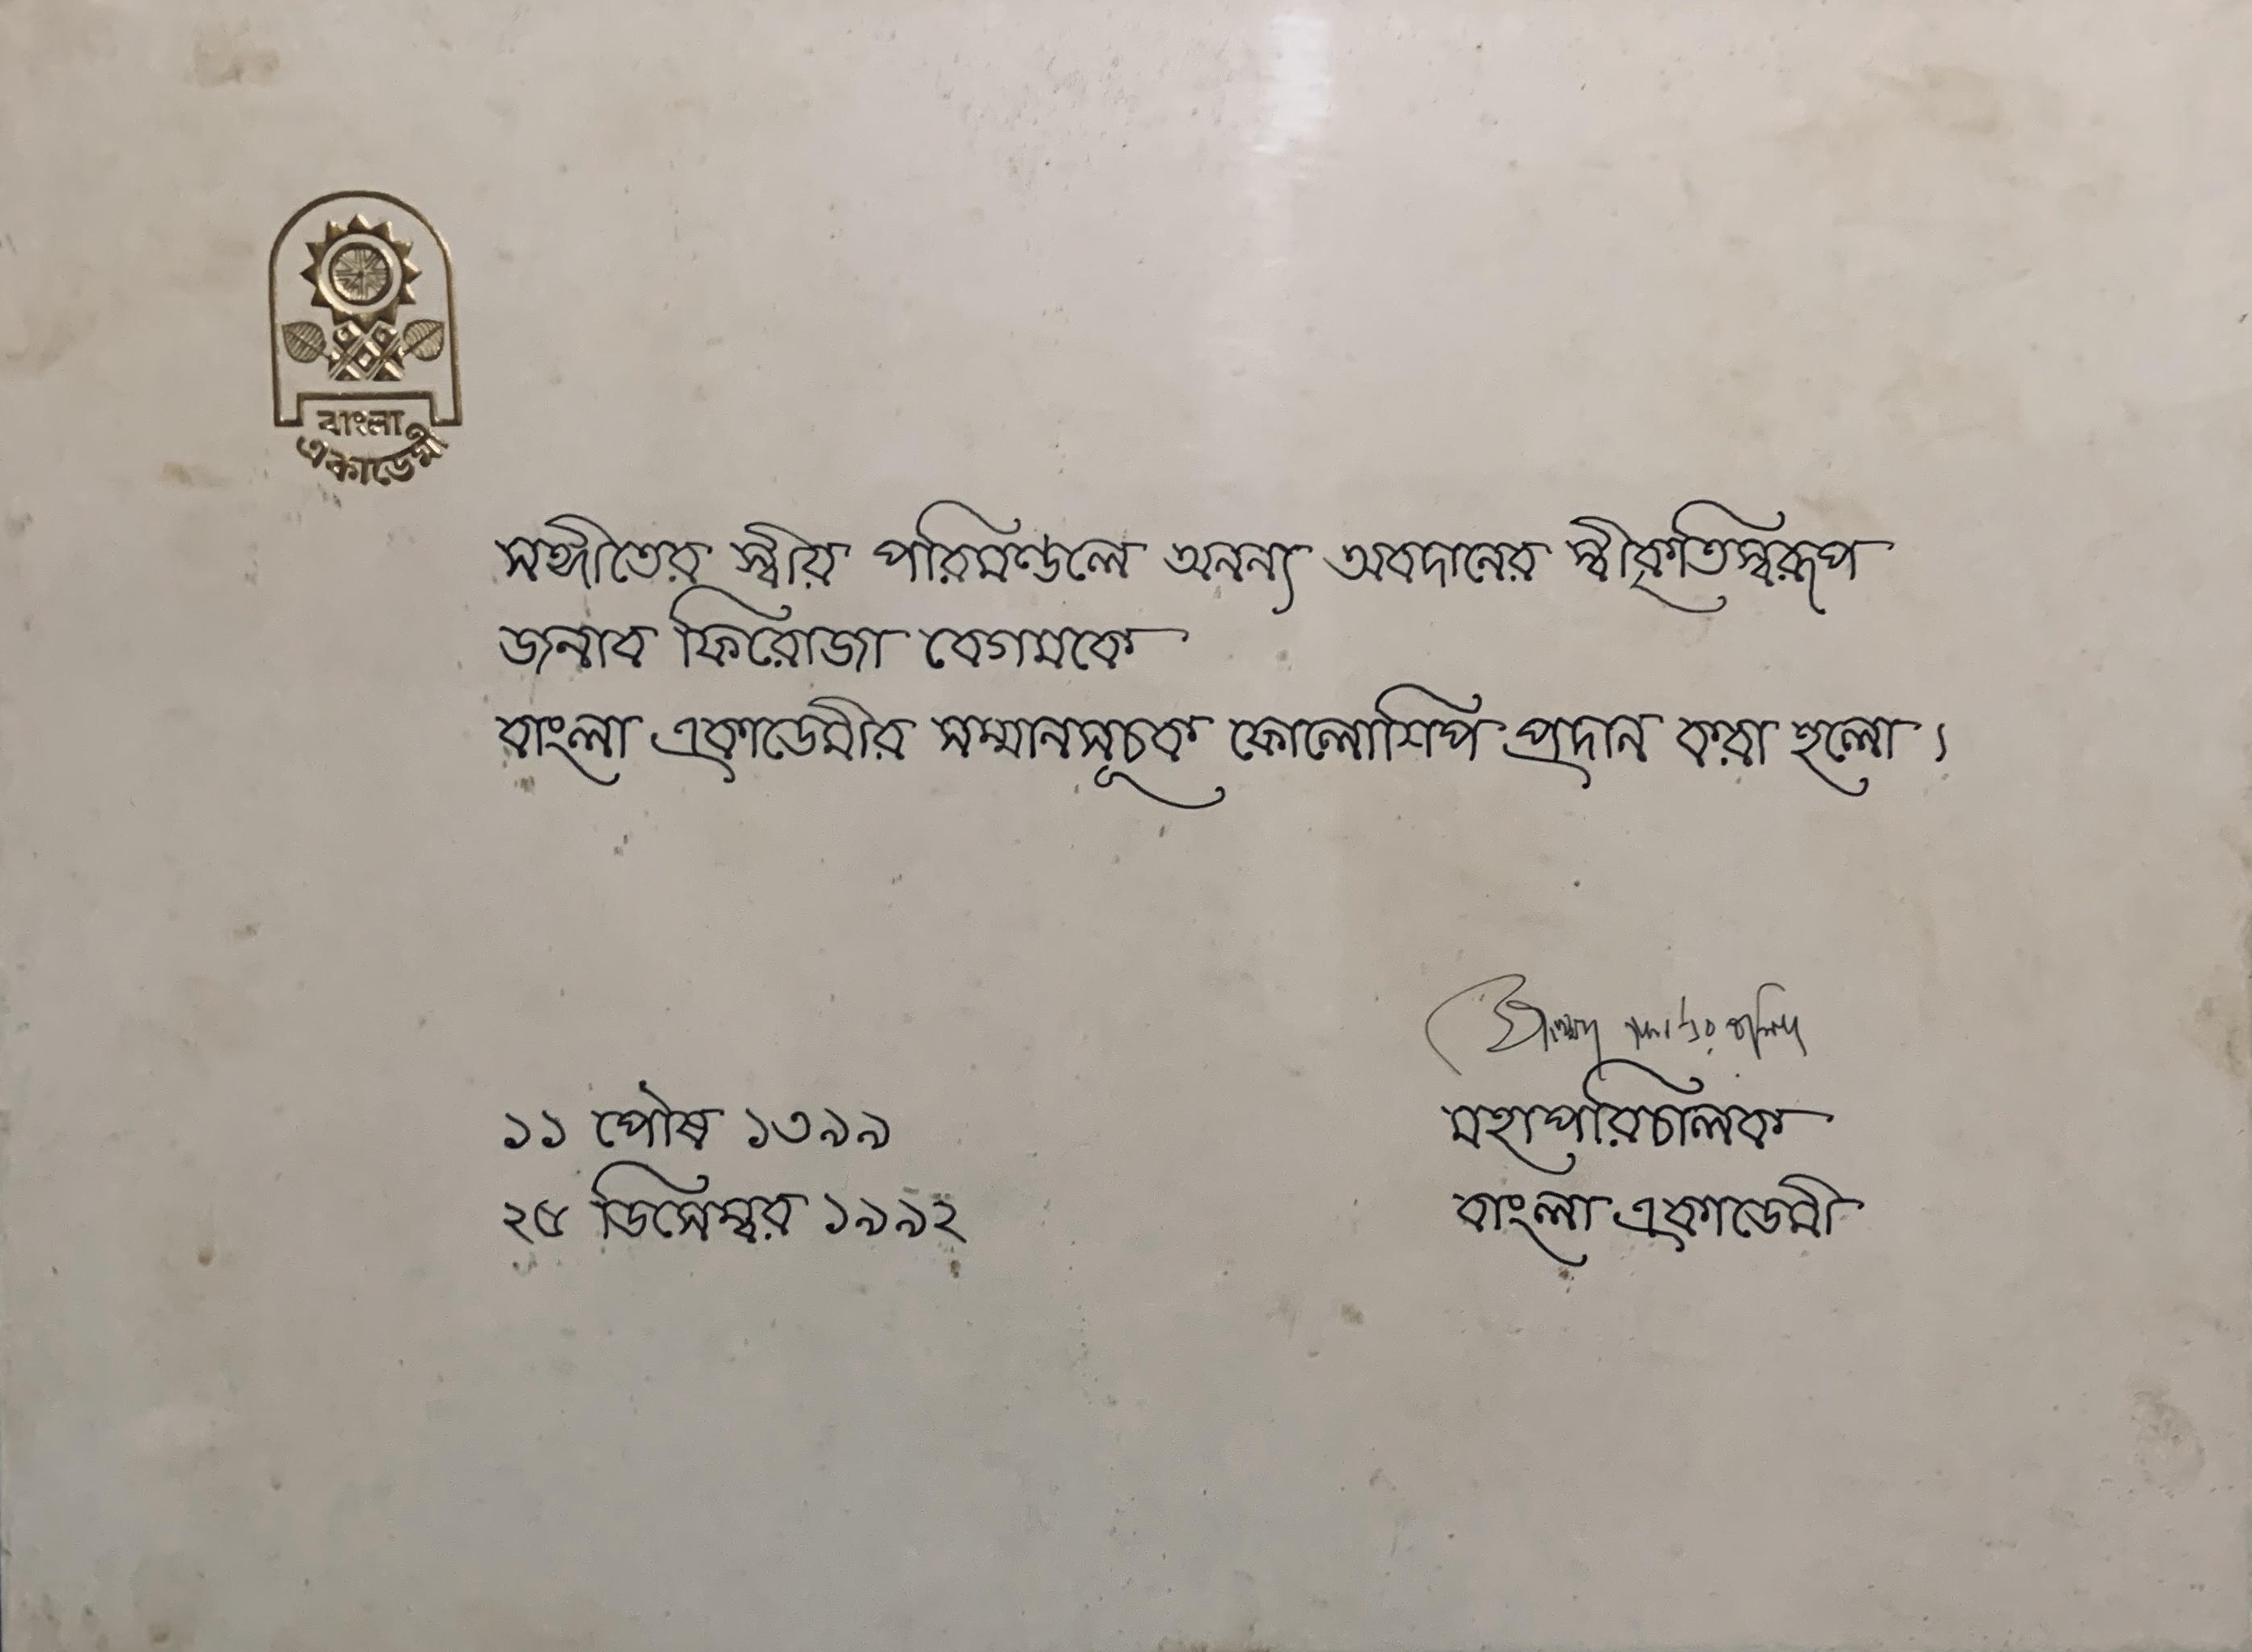 বাংলা
একাডেমী
সঙ্গীতের স্বীয় পরিমণ্ডলে অনন্য অবদানের স্বীকৃতিস্বরূপ
জনাব ফিরোজা বেগমকে
বাংলা একাডেমীর সম্মানসূচক ফেলোশিপ প্রদান করা হলো।
১১ পৌষ ১৩৯৯
২৫ ডিসেম্বর ১৯৯২
মহাপরিচালক
বাংলা একাডেমী